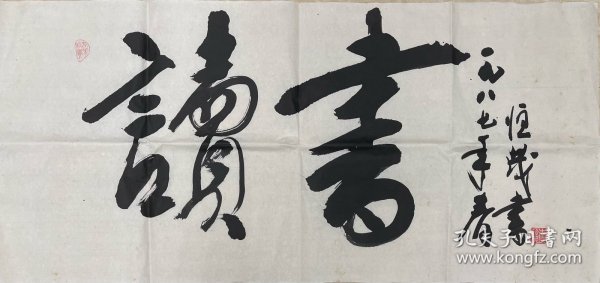 讀書
一九八七年春
恒茂書
孔夫子旧书网
www.kongfz.com